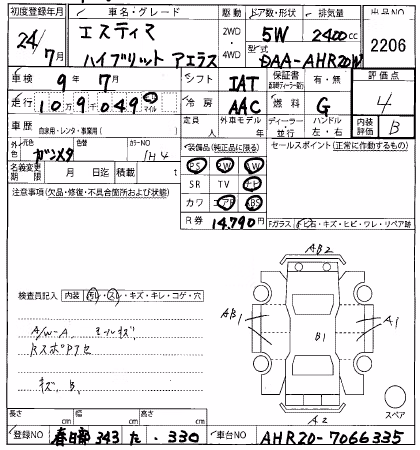 初度登録年月 車名・グレード 駆動 ドア数・形状 排気量 出品NO
24/7月 エスティマ 2WD・4WD 5W 2400cc
ハイブリット アエラス 型式 DAA-AHR20W 2206
車検 9年7月 シフト IAT 保証書 有・無 評価点
走行 10万9千049 冷房 AAC 燃料 G 4
車歴 自家用・レンタ・事業用( ) 定員 人 外車モデル 年 ディーラー・並行 ハンドル 左・右 内装評価 B
外色 元色 ガンメタ 色替 カラーNO 1H4 装備品(純正品に限る) セールスポイント(正常に作動するもの)
名義変更期限 月 日迄 積載 t PS PW AW
注意事項(欠品・修復・不具合箇所および状態) SR TV ナビ
カワ エアB ABS
R券 14,790円 Fガラス 飛石・キズ・ヒビ・ワレ・リペア跡
AB2
検査員記入 内装 汚レ・スレ・キズ・キレ・コゲ・穴
AB1 B1 A1
A/W-A モールキズ
RスポPアセ
キズ、B、
A2 スペア
長さ cm 幅 cm 高さ cm
登録NO 春日部 343 た・330 車台NO AHR20-7066335